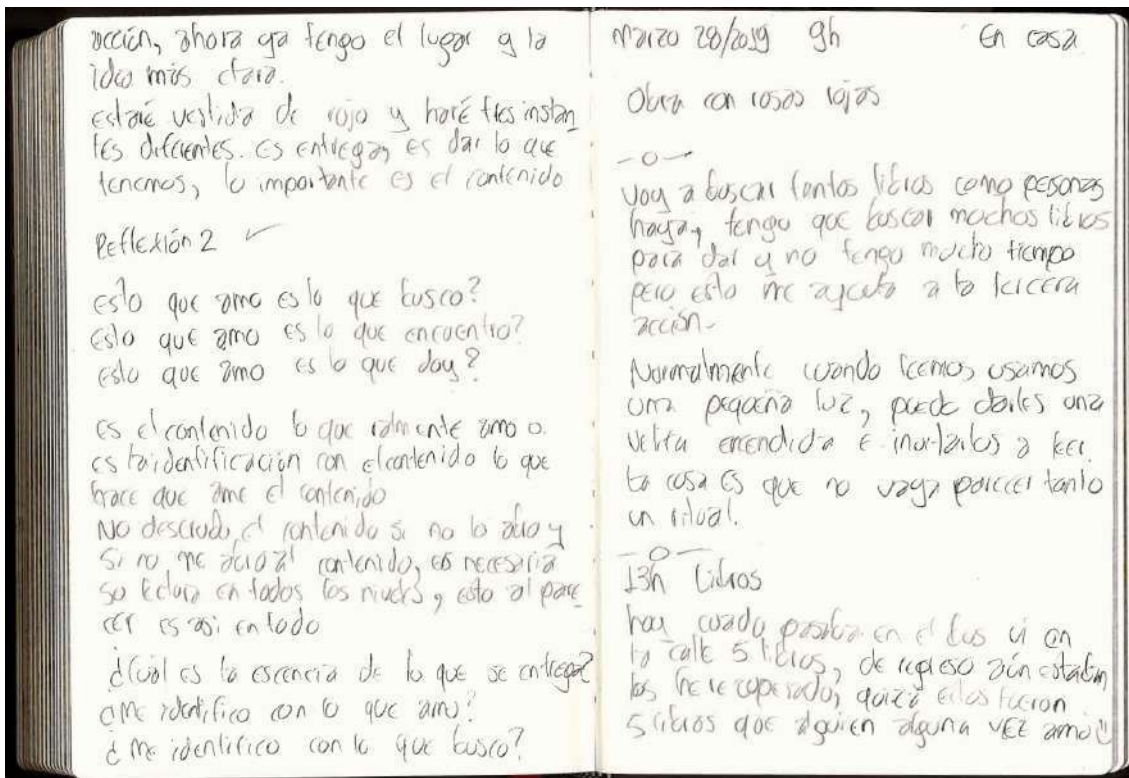 acción, ahora ya tengo el lugar y la
idea más clara.
estaré vestida de rojo y haré tres instan
tes diferentes. es entregar, es dar lo que
tenemos, lo importante es el contenido
Reflexión 2 ✓
esto que amo es lo que busco?
esto que amo es lo que encuentro?
esto que amo es lo que doy?
es el contenido lo que ralmente amo o
es la identificación con el contenido lo que
hace que ame el contenido
No descubro el contenido si no lo abro y
si no me abro al contenido, es necesaria
su lectura en todos los niveles, esto al pare
cer es asi en todo
¿Cuál es la escencia de lo que se entrega?
¿Me identifico con lo que amo?
¿Me identifico con lo que busco?
Marzo 28/2019 9h En casa
Obra con rosas rojas
-o-
voy a buscar tantos libros como personas
haya, tengo que buscar muchos libros
para dar y no tengo mucho tiempo
pero esto me ayuda a la tercera
acción-
Normalmente cuando leemos, usamos
una pequeña luz, puedo darles una
velita encendida e invitarlos a leer.
la cosa es que no vaya parecer tanto
un ritual.
-o-
13h Libros
hoy cuado pasaba en el bus vi en
la calle 5 libros, de regreso aún estaban
los he recuperado, quizá ellos fueron
5 libros que alguien alguna vez amó